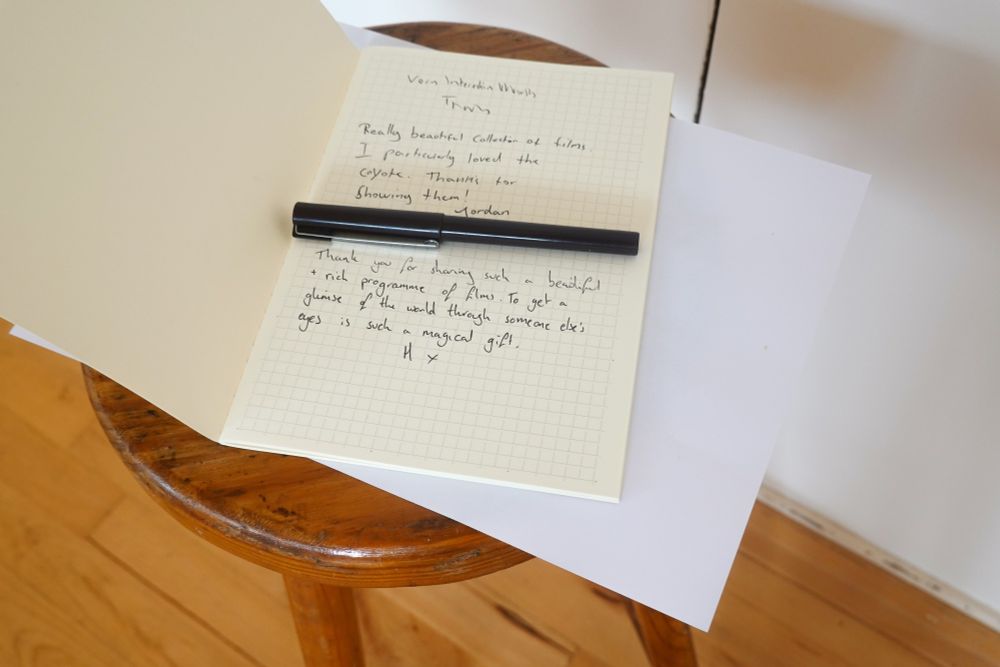 Really beautiful collection of films.
I particularly loved the
coyote. Thanks for
showing them!
Jordan
Thank you for sharing such a beautiful
+ rich programme of films. To get a
glimse of the world through someone else's
eyes is such a magical gift.
H x